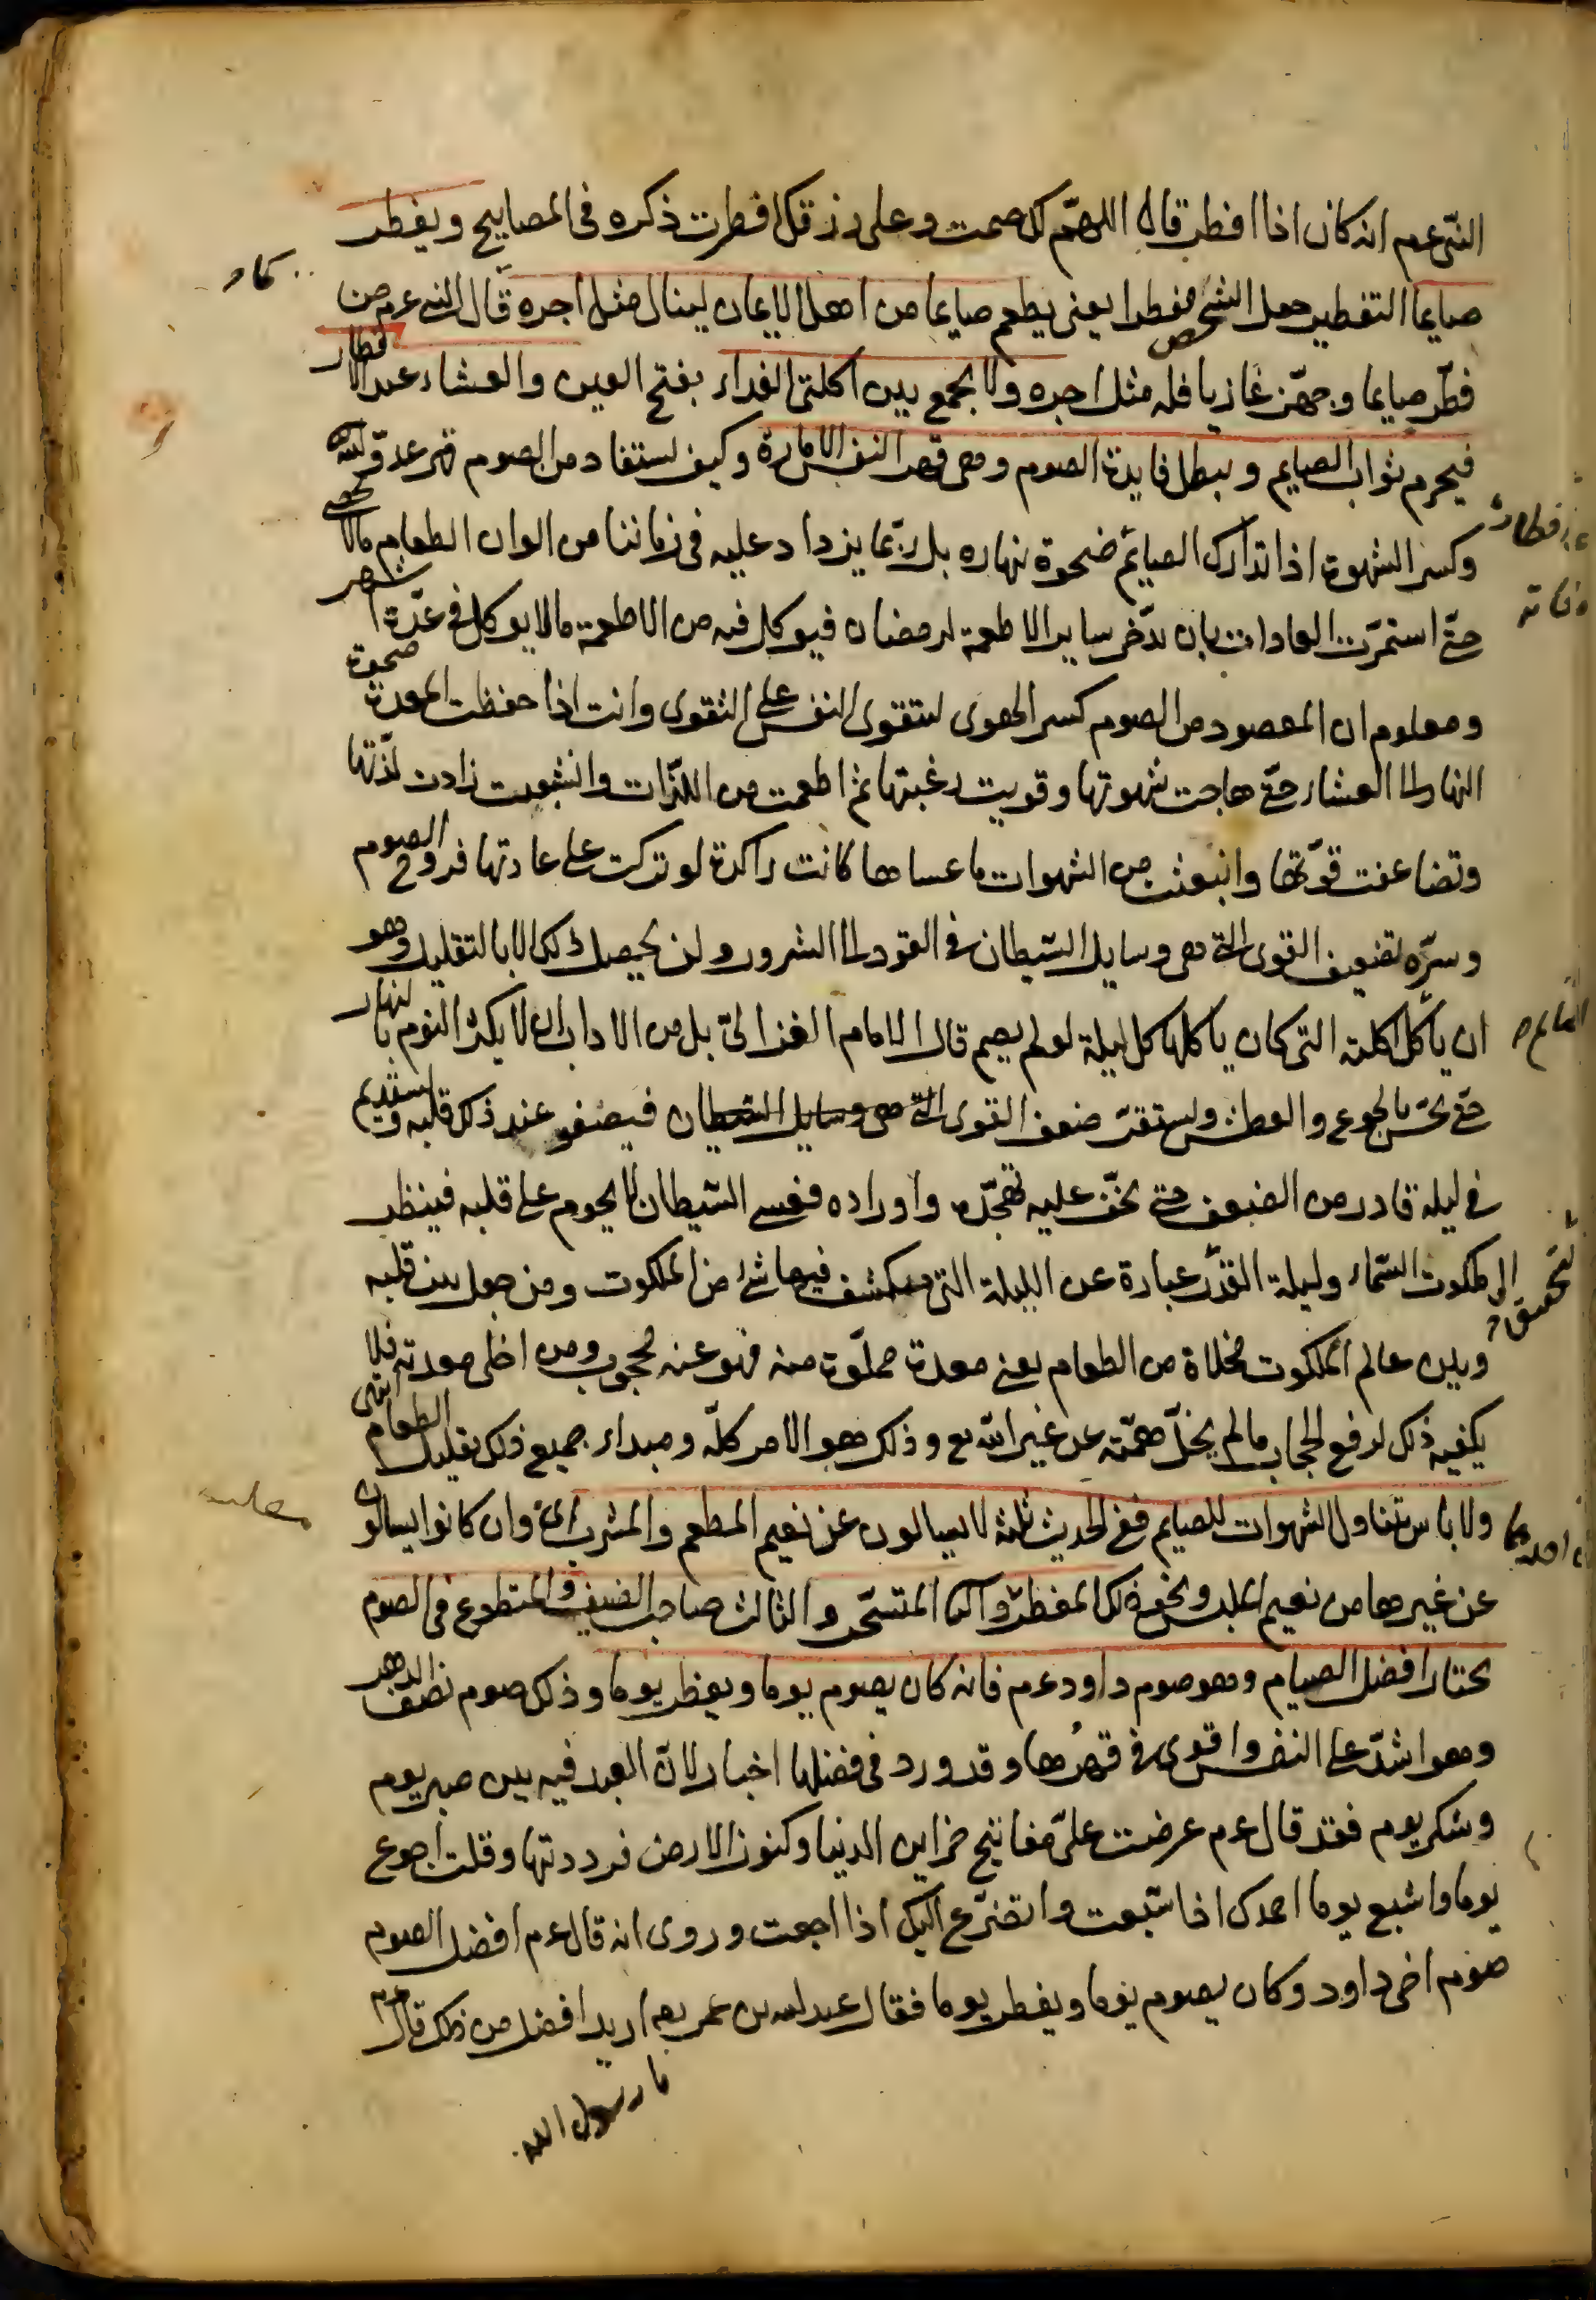 النبى عم انه كان اذا افطر قال اللهم لك صمت وعلى رزقك افطرت ذكره فى المصابيح ويفطر
صايما التفطير جعل الشخص مفطرا يعنى يطعم صايما من اهل الايمان لينال مثل اجره قال النبى عم من
فطر صايما وجهز غازيا فله مثل اجره ولا يجمع بين اكلتى الغداء بفتح الغين والعشاء عند الافطار
فيحرم ثواب الصايم ويبطل فايدة الصوم وهى قهر النفس الامارة وكيف يستفاد من الصوم قهر عدو الله
وكسر الشهوة اذا تدارك الصائم ضحوة نهاره بل ربما يزداد عليه فى زماننا من الوان الطعام مالا يحصى
حتى استمرت العادات بان تدخر ساير الاطعمة لرمضان فيوكل فيه من الاطعمة مالا يوكل فى عدة اشهر
ومعلوم ان المقصود من الصوم كسر الهوى لتتقوى النفس على التقوى وانت اذا حفظت المعدة ضحوة
النهار الى العشاء حتى هاجت شهوتها وقويت رغبتها ثم اطعمت من اللذات واشبعت زادت لذتها
وتضاعفت قوتها وانبعث من الشهوات ما عساها كانت راكدة لو تركت على عادتها فروح الصوم
وسره تضعيف القوى التى هى وسايل الشيطان فى القود الى الشرور ولن يحصل ذلك الا بالتقليل وهو
ان ياكل اكلته التى كان ياكلها كل ليلة لو لم يصم قال الامام الغزالى بل من الاداب ان لا يكثر النوم بالنهار
حتى يحس بالجوع والعطش ويستقر ضعف القوى التى هى وسايل الشيطان فيصفو عند ذلك قلبه ويستديم
فى ليلة قادر من الضعف حتى يخف عليه تهجده واوراده فعسى الشيطان لا يحوم على قلبه فينظر
الى ملكوت السماء وليلة القدر عبارة عن الليلة التى ينكشف فيها شئ من الملكوت ومن جعل بين قلبه
وبين عالم الملكوت مخلاة من الطعام يعنى معدة مملوة منه فهو عنه محجوب ومن اخلى معدته فلا
يكفيه ذلك لرفع الحجاب مالم يخل همته عن غير الله تع وذلك هو الامر كله ومبداء جميع ذلك تقليل الطعام انتهى
ولا باس بتناول الشهوات للصايم ففى الحديث ثلثة لا يسالون عن نعيم المطعم والمشرب وان كانوا يسالون
عن غيرها من نعيم الملبس ونحو ذلك المفطر والمتسحر والثالث صاحب الضيف والمتطوع فى الصوم
يختار افضل الصيام وهو صوم داود عم فانه كان يصوم يوما ويفطر يوما وذلك صوم نصف الدهر
وهو اشد على النفس واقوى فى قهرها وقد ورد فى فضلها اخبار لان العبد فيه بين صبر يوم
وشكر يوم فقد قال عم عرضت على مفاتيح خزاين الدنيا وكنوز الارض فرددتها وقلت اجوع
يوما واشبع يوما احمدك اذا شبعت واتضرع اليك اذا جعت وروى انه قال عم افضل الصوم
صوم اخى داود وكان يصوم يوما ويفطر يوما فقال عبد الله بن عمر رضه اريد افضل من ذلك قال عم
يا رسول الله